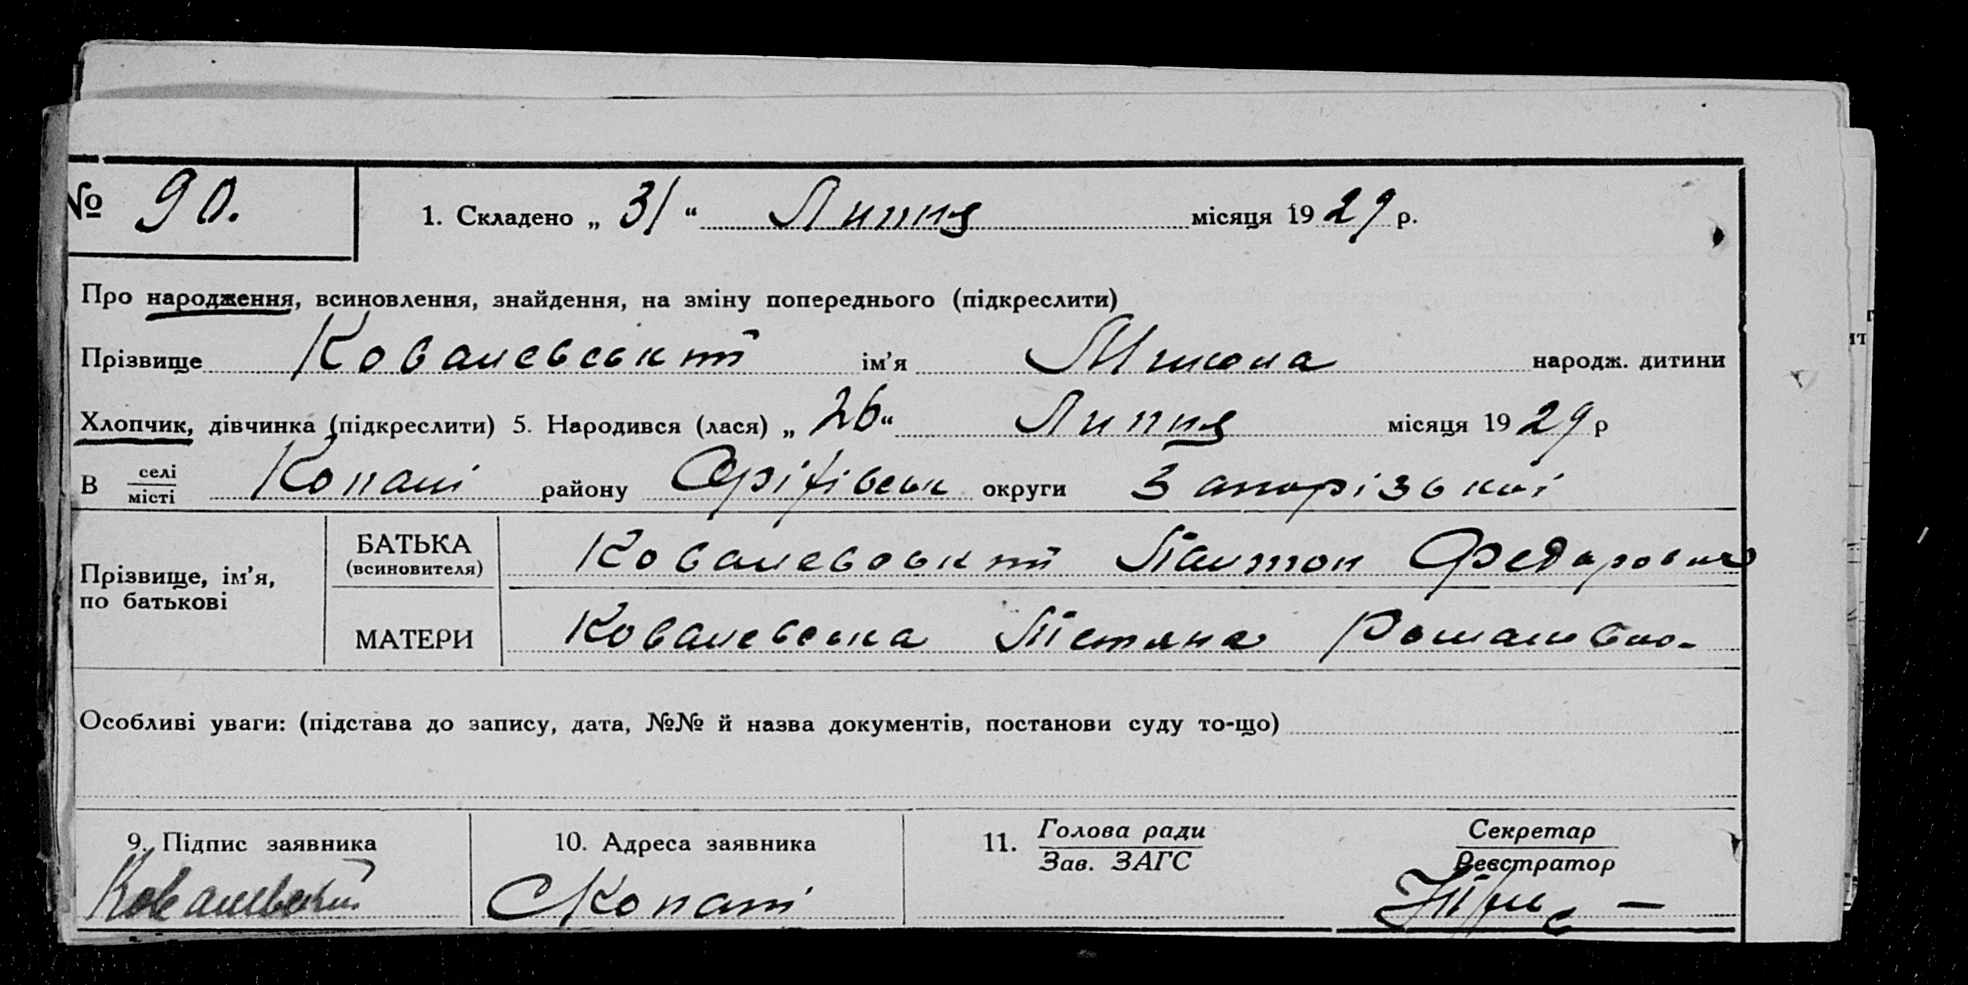 № 90. 1. Складено „ 31 “ Липня місяця 1929 р.
Про народження, всиновлення, знайдення, на зміну попереднього (підкреслити)
Прізвище Ковалевський ім’я Микола народж. дитини
Хлопчик, дівчинка (підкреслити) 5. Народився (лася) „ 26 “ Липня місяця 1929 р
В селі місті Копані району Оріхівськ округи Запорізької
Прізвище, ім’я, по батькові
БАТЬКА (всиновителя) Ковалевський Федорович
МАТЕРИ Ковалевська Тетяна Романовна
Особливі уваги: (підстава до запису, дата, №№ й назва документів, постанови суду то-що)
9. Підпис заявника 10. Адреса заявника 11. Голова ради Секретар
Зав. ЗАГС Реєстратор
Ковалевский С Копані